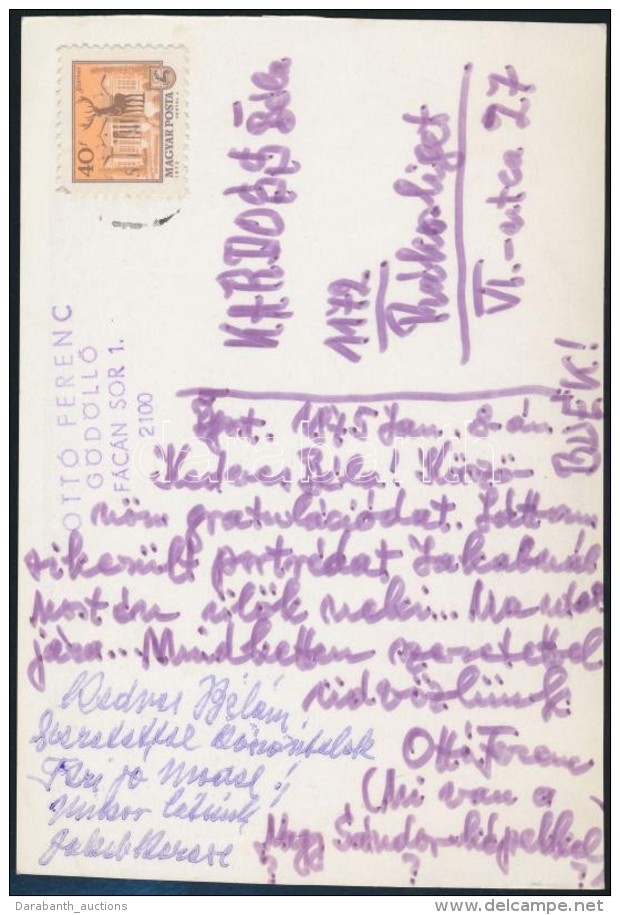 40f
MAGYAR POSTA
OTTÓ FERENC
GÖDÖLLŐ
FÁCÁN SOR 1.
2100
KARDOSS Béla
1172.
Rákosliget
VI.-utca 27
BUÉK!
Bpst. 1975 Jan. 8-án
Kedves Béla! Köszö-
nöm gratulációdat. Láttam
sikerült portrédat Jakabnál
most én ülök neki...
Mindketten szeretettel
üdvözlünk
Ottó Ferenc
(Mi van a
Nagy Sándor-képekkel)
? ?
Kedves Bélám,
Szeretettel köszöntelek
Feri jó modell!
Mikor látunk
darabanth
Darabanth_auctions
www.delcampe.net